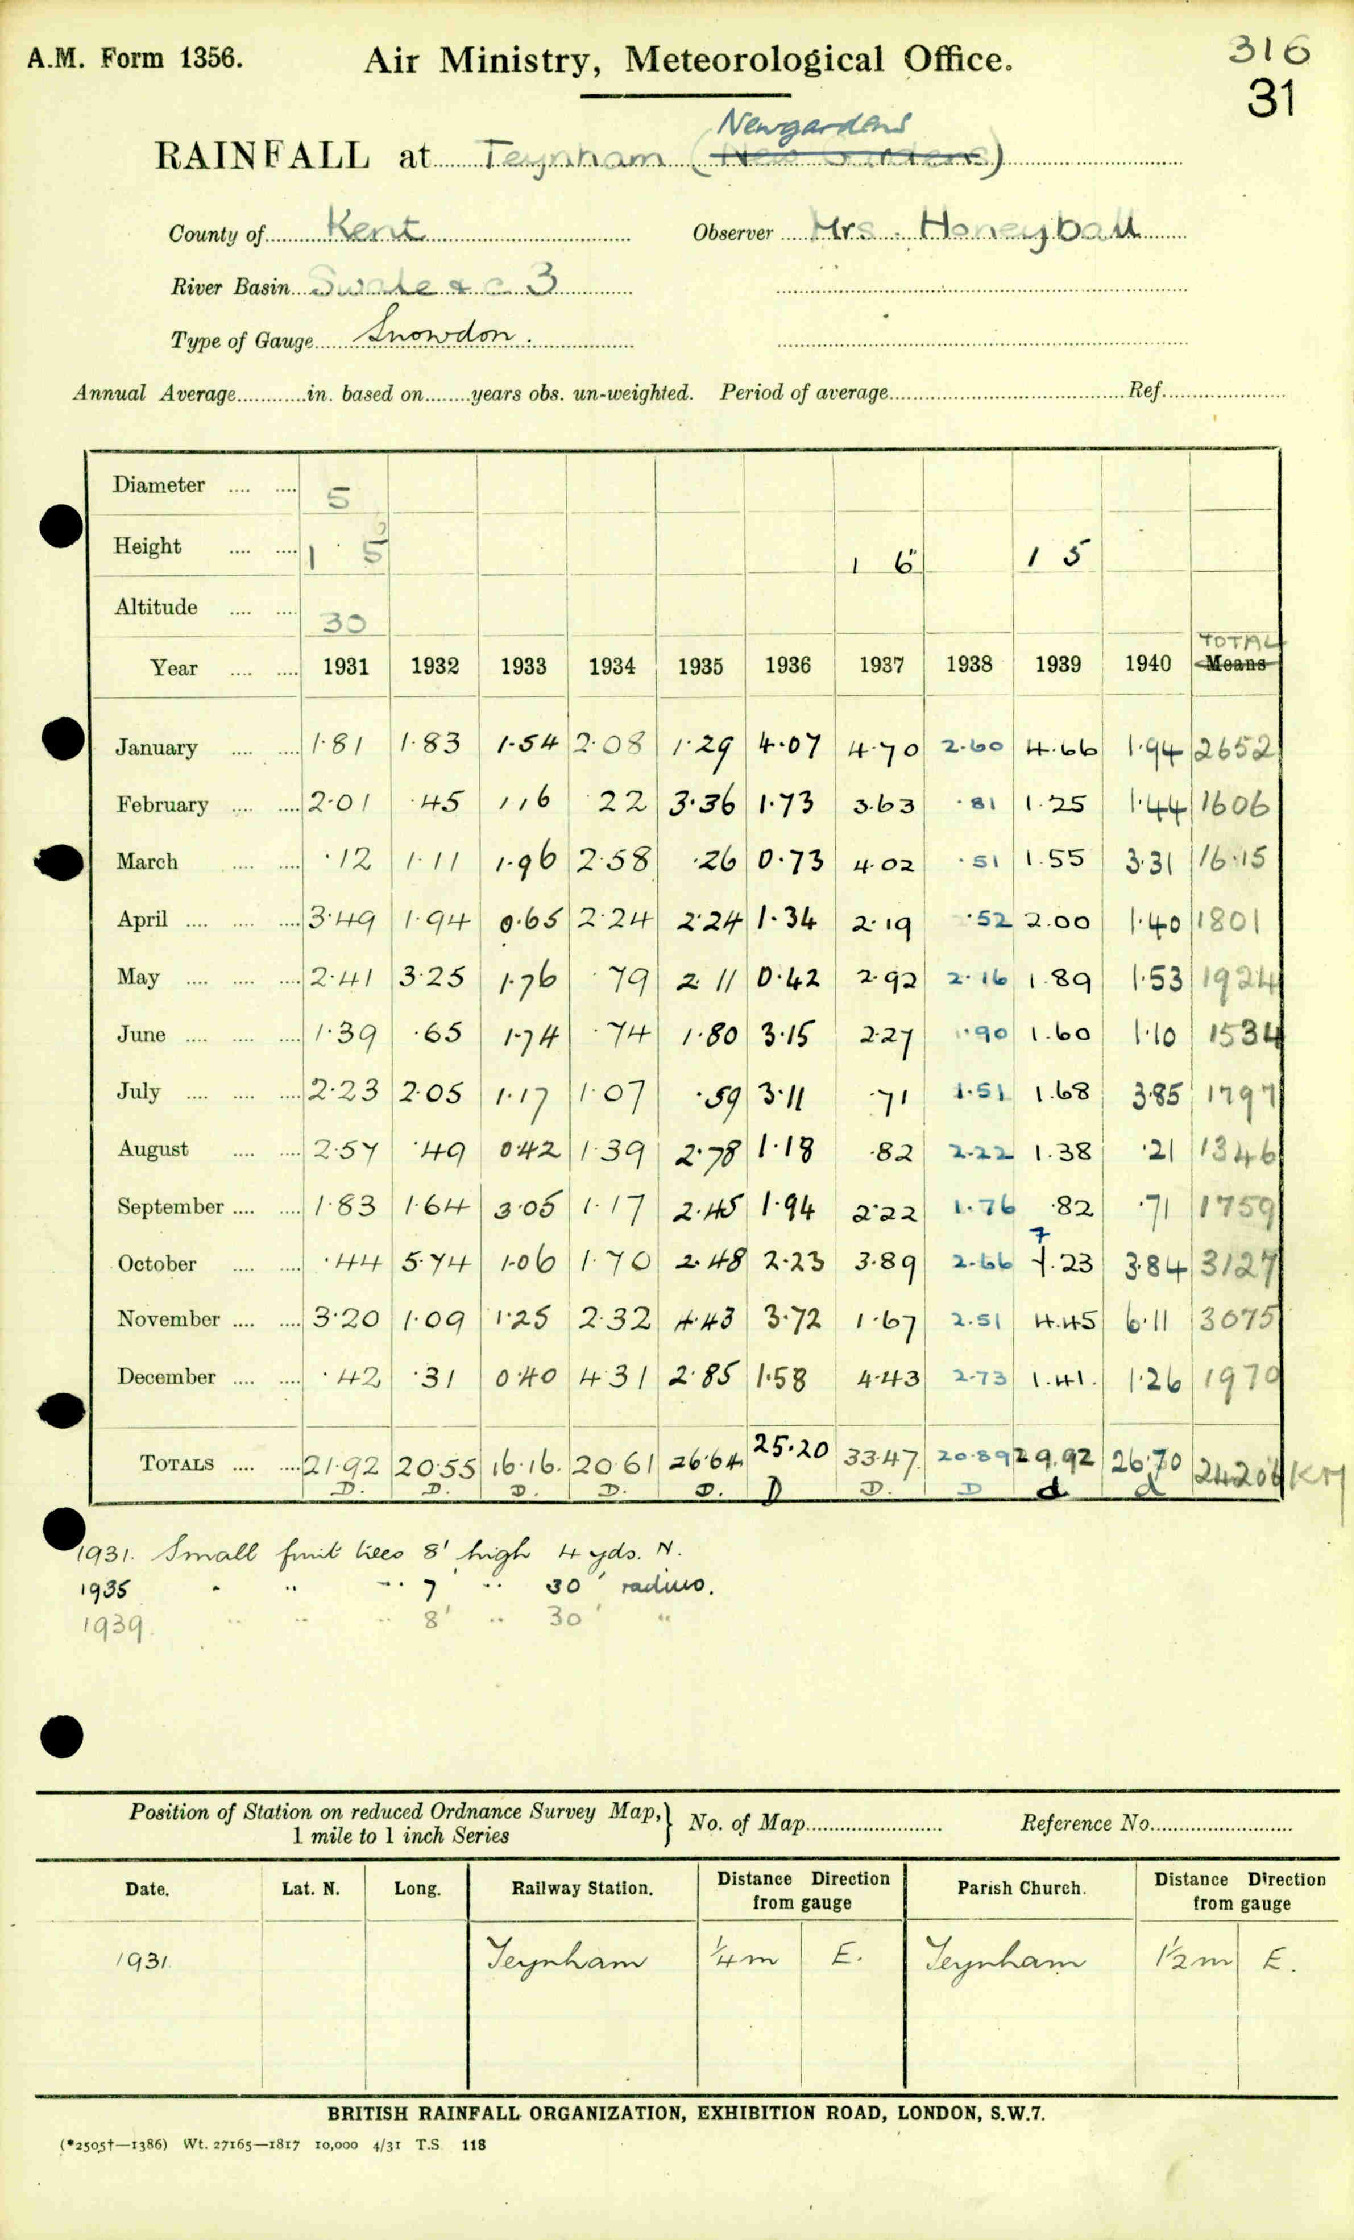 A.M. Form 1356.
Air Ministry, Meteorological Office.
316
31
Newgardens
RAINFALL at Teynham (New Gardens)
County of Kent Observer Mrs. Honeyball
River Basin Swale &c 3
Type of Gauge Snowdon.
Annual Average in. based on years obs. un-weighted. Period of average Ref.
Diameter 5
Height 1 5 1 6" 1 5
Altitude 30
TOTAL
Year 1931 1932 1933 1934 1935 1936 1937 1938 1939 1940 Means
January 1.81 1.83 1.54 2.08 1.29 4.07 4.70 2.60 4.66 1.94 2652
February 2.01 .45 1.16 .22 3.36 1.73 3.63 .81 1.25 1.44 1606
March .12 1.11 1.96 2.58 .26 0.73 4.02 .51 1.55 3.31 16.15
April 3.49 1.94 0.65 2.24 2.24 1.34 2.19 .52 2.00 1.40 1801
May 2.41 3.25 1.76 .79 2.11 0.42 2.92 2.16 1.89 1.53 1924
June 1.39 .65 1.74 .74 1.80 3.15 2.27 1.90 1.60 1.10 1534
July 2.23 2.05 1.17 1.07 .59 3.11 .71 1.51 1.68 3.85 1797
August 2.57 .49 0.42 1.39 2.78 1.18 .82 2.22 1.38 .21 1346
September 1.83 1.64 3.05 1.17 2.45 1.94 2.22 1.76 .82 .71 1759
October .44 5.74 1.06 1.70 2.48 2.23 3.89 2.66 7.23 3.84 3127
November 3.20 1.09 1.25 2.32 4.43 3.72 1.67 2.51 4.45 6.11 3075
December .42 .31 0.40 4.31 2.85 1.58 4.43 2.73 1.41 1.26 1970
TOTALS 21.92 20.55 16.16 20.61 26.64 25.20 33.47 20.89 29.92 26.70 24206 KM
D. D. D. D. D. D D. D d d
1931. Small fruit trees 8' high 4 yds. N.
1935 " " " 7' " 30' radius.
1939. " " " 8' " 30' "
Position of Station on reduced Ordnance Survey Map, 1 mile to 1 inch Series No. of Map Reference No.
Date. Lat. N. Long. Railway Station. Distance Direction from gauge Parish Church. Distance Direction from gauge
1931. Teynham ¼m E. Teynham 1½m E.
BRITISH RAINFALL ORGANIZATION, EXHIBITION ROAD, LONDON, S.W.7.
(*2505†—1386) Wt. 27165—1817 10,000 4/31 T.S. 118